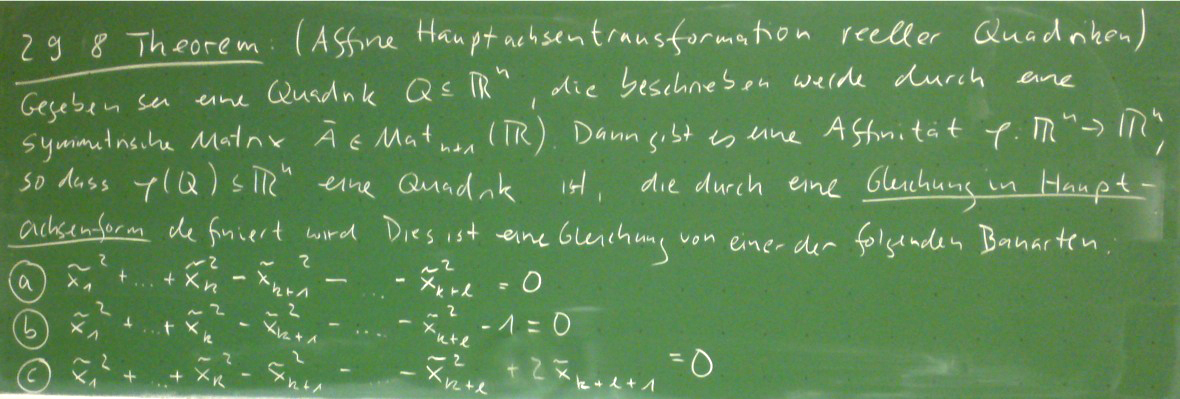 2 9 8 Theorem: (Affine Hauptachsentransformation reeller Quadriken)
Gegeben sei eine Quadrik Q ⊆ ℝⁿ, die beschrieben werde durch eine
symmetrische Matrix Ā ∈ Mat_{n+1} (ℝ). Dann gibt es eine Affinität φ: ℝⁿ → ℝⁿ,
so dass φ(Q) ⊆ ℝⁿ eine Quadrik ist, die durch eine Gleichung in Haupt-
achsenform definiert wird Dies ist eine Gleichung von einer der folgenden Bauarten:
(a) x̃₁² + ... + x̃ₖ² - x̃ₖ₊₁² - ... - x̃ₖ₊ₗ² = 0
(b) x̃₁² + ... + x̃ₖ² - x̃ₖ₊₁² - .... - x̃ₖ₊ₗ² - 1 = 0
(c) x̃₁² + ... + x̃ₖ² - x̃ₖ₊₁² - ... - x̃ₖ₊ₗ² + 2 x̃ₖ₊ₗ₊₁ = 0